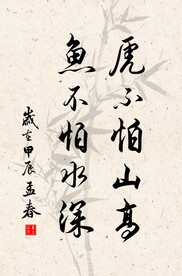 虎不怕山高
魚不怕水深
歲在甲辰孟春